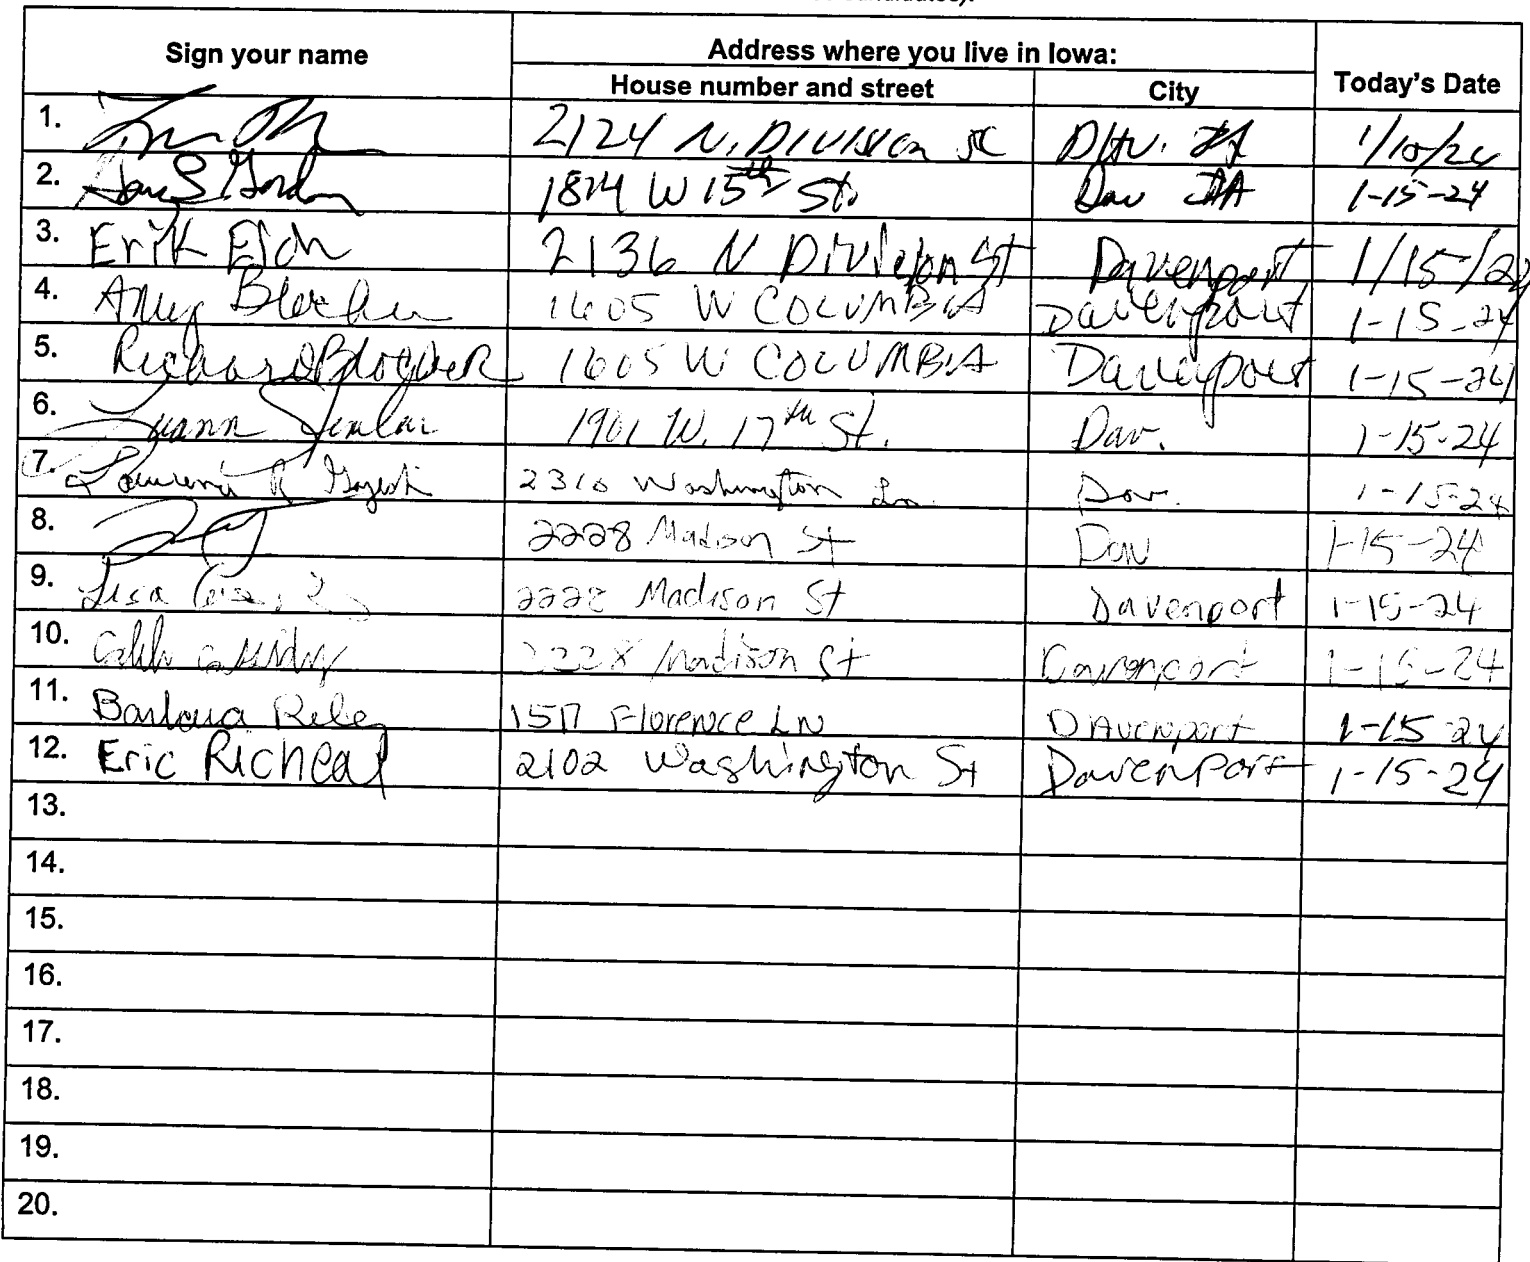 candidates).
Sign your name
Address where you live in Iowa:
House number and street
City
Today's Date
1. 2124 N. DIVISION St DAV. IA 1/10/24
2. Gordon 1814 W 15th St. Dav IA 1-15-24
3. Erik 2136 N Division St Davenport 1/15/24
4. Amy 1605 W COLUMBIA Davenport 1-15-24
5. Richard 1605 W COLUMBIA Davenport 1-15-24
6. Luann 1901 W. 17th St. Dav. 1-15-24
7. R 2310 Washington Ln. Dav. 1-15-24
8. 2228 Madison St Dav 1-15-24
9. Lisa 2228 Madison St Davenport 1-15-24
10. 2228 Madison St Davenport 1-15-24
11. Barbara Florence LN DAvenport 1-15-24
12. Eric Richeal 2102 Washington St Davenport 1-15-24
13.
14.
15.
16.
17.
18.
19.
20.